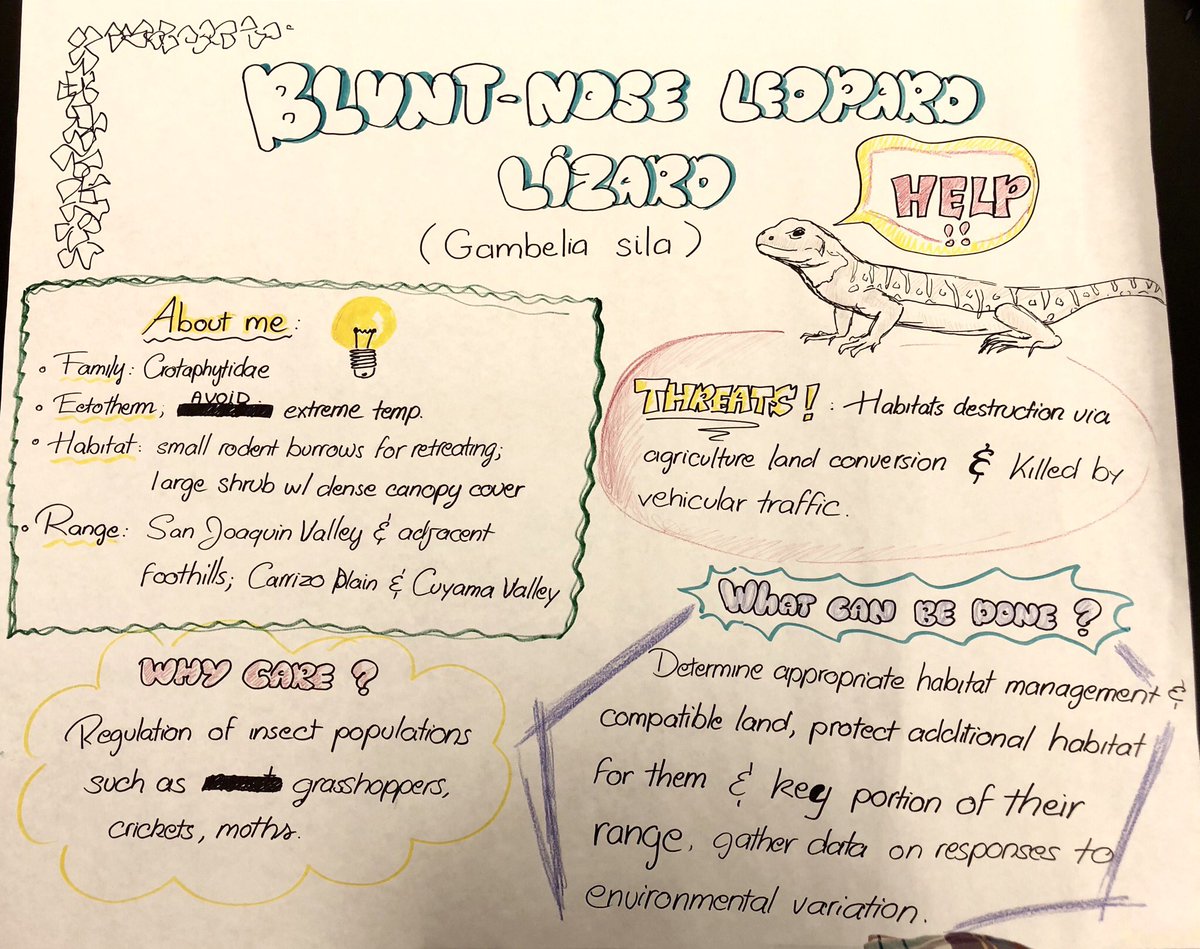 BLUNT-NOSE LEOPARD
LIZARD
(Gambelia sila)
HELP!!
About me:
• Family: Crotaphytidae
• Ectotherm; AVOID extreme temp.
• Habitat: small rodent burrows for retreating;
large shrub w/ dense canopy cover
• Range: San Joaquin Valley & adjacent
foothills; Carrizo Plain & Cuyama Valley
THREATS! : Habitats destruction via
agriculture land conversion & Killed by
vehicular traffic.
WHY CARE?
Regulation of insect populations
such as grasshoppers,
crickets, moths.
WHAT CAN BE DONE?
Determine appropriate habitat management &
compatible land, protect additional habitat
for them & key portion of their
range, gather data on responses to
environmental variation.